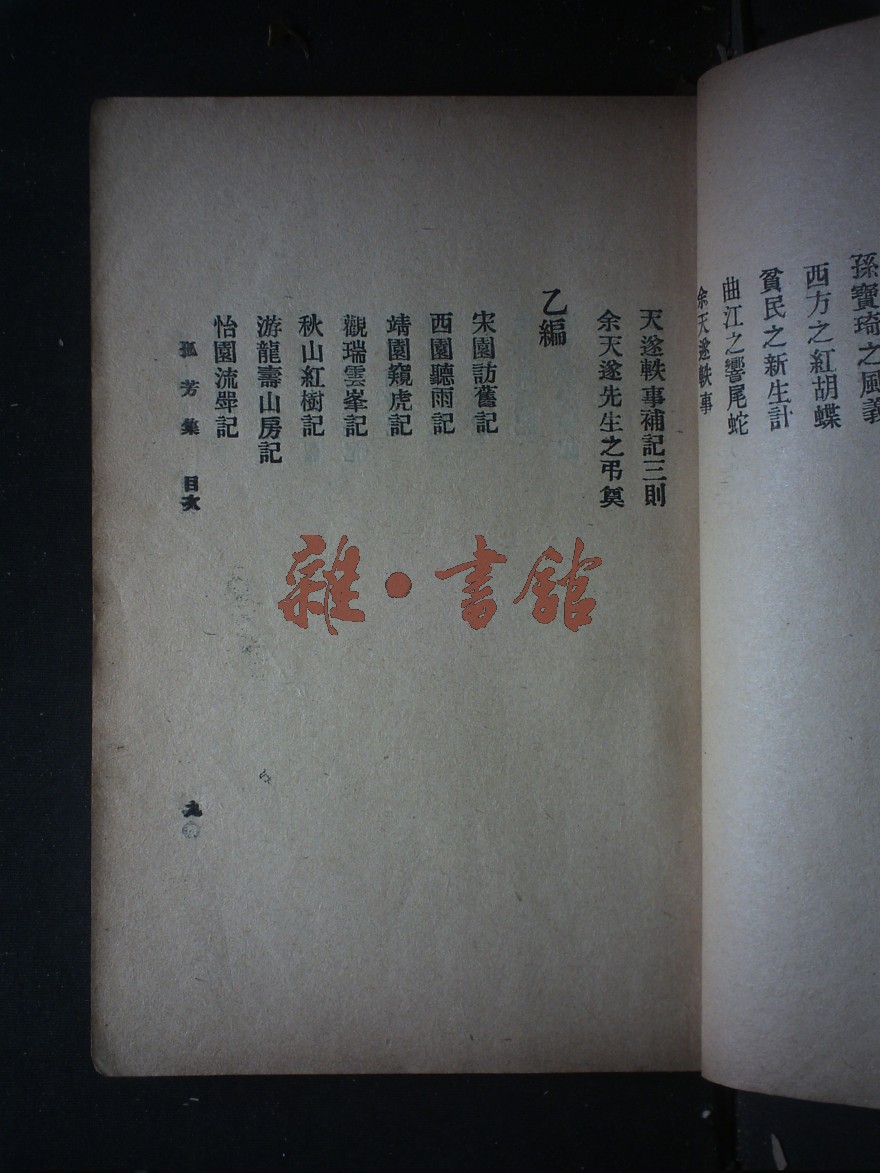 孫寶琦之風義
西方之紅胡蝶
貧民之新生計
曲江之響尾蛇
余天遂軼事
天遂軼事補記三則
余天遂先生之弔奠
乙編
宋園訪舊記
西園聽雨記
靖園窺虎記
觀瑞雲峯記
秋山紅樹記
游龍壽山房記
怡園流觴記
孤芳集 目次
九
雜·書館